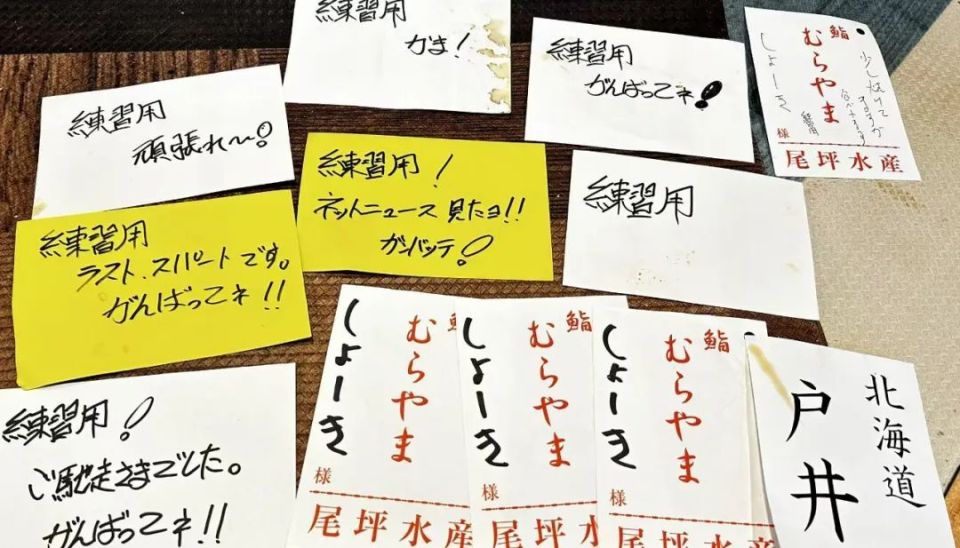 練習用
がま!
練習用
がばってネ!
鮨
むらやま
しょーき
様
尾坪水産
練習用
頑張れ〜!
練習用!
ネットニュース見たヨ!!
ガンバッテ!
練習用
練習用
ラスト.スパートです。
がんばってネ!!
練習用!
ご馳走さまでした。
がんばってネ!!
鮨
むらやま
しょーき
様
尾坪水産
鮨
むらやま
しょーき
様
尾坪水
鮨
むらやま
しょーき
様
尾坪水産
北海道
戸井